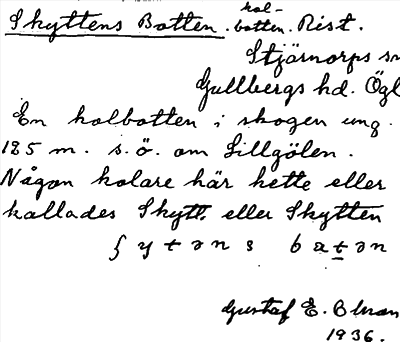 Skyttens Botten. kol-
botten. Rist.
Stjärnorps sn
Gullbergs hd. Ögl
En kolbotten i skogen ung.
125 m. s.ö. om Lillgölen.
Någon kolare här hette eller
kallades Skytt. eller Skytten
ʃ y t ə n s b a t ə n
Gustaf E.
1936.